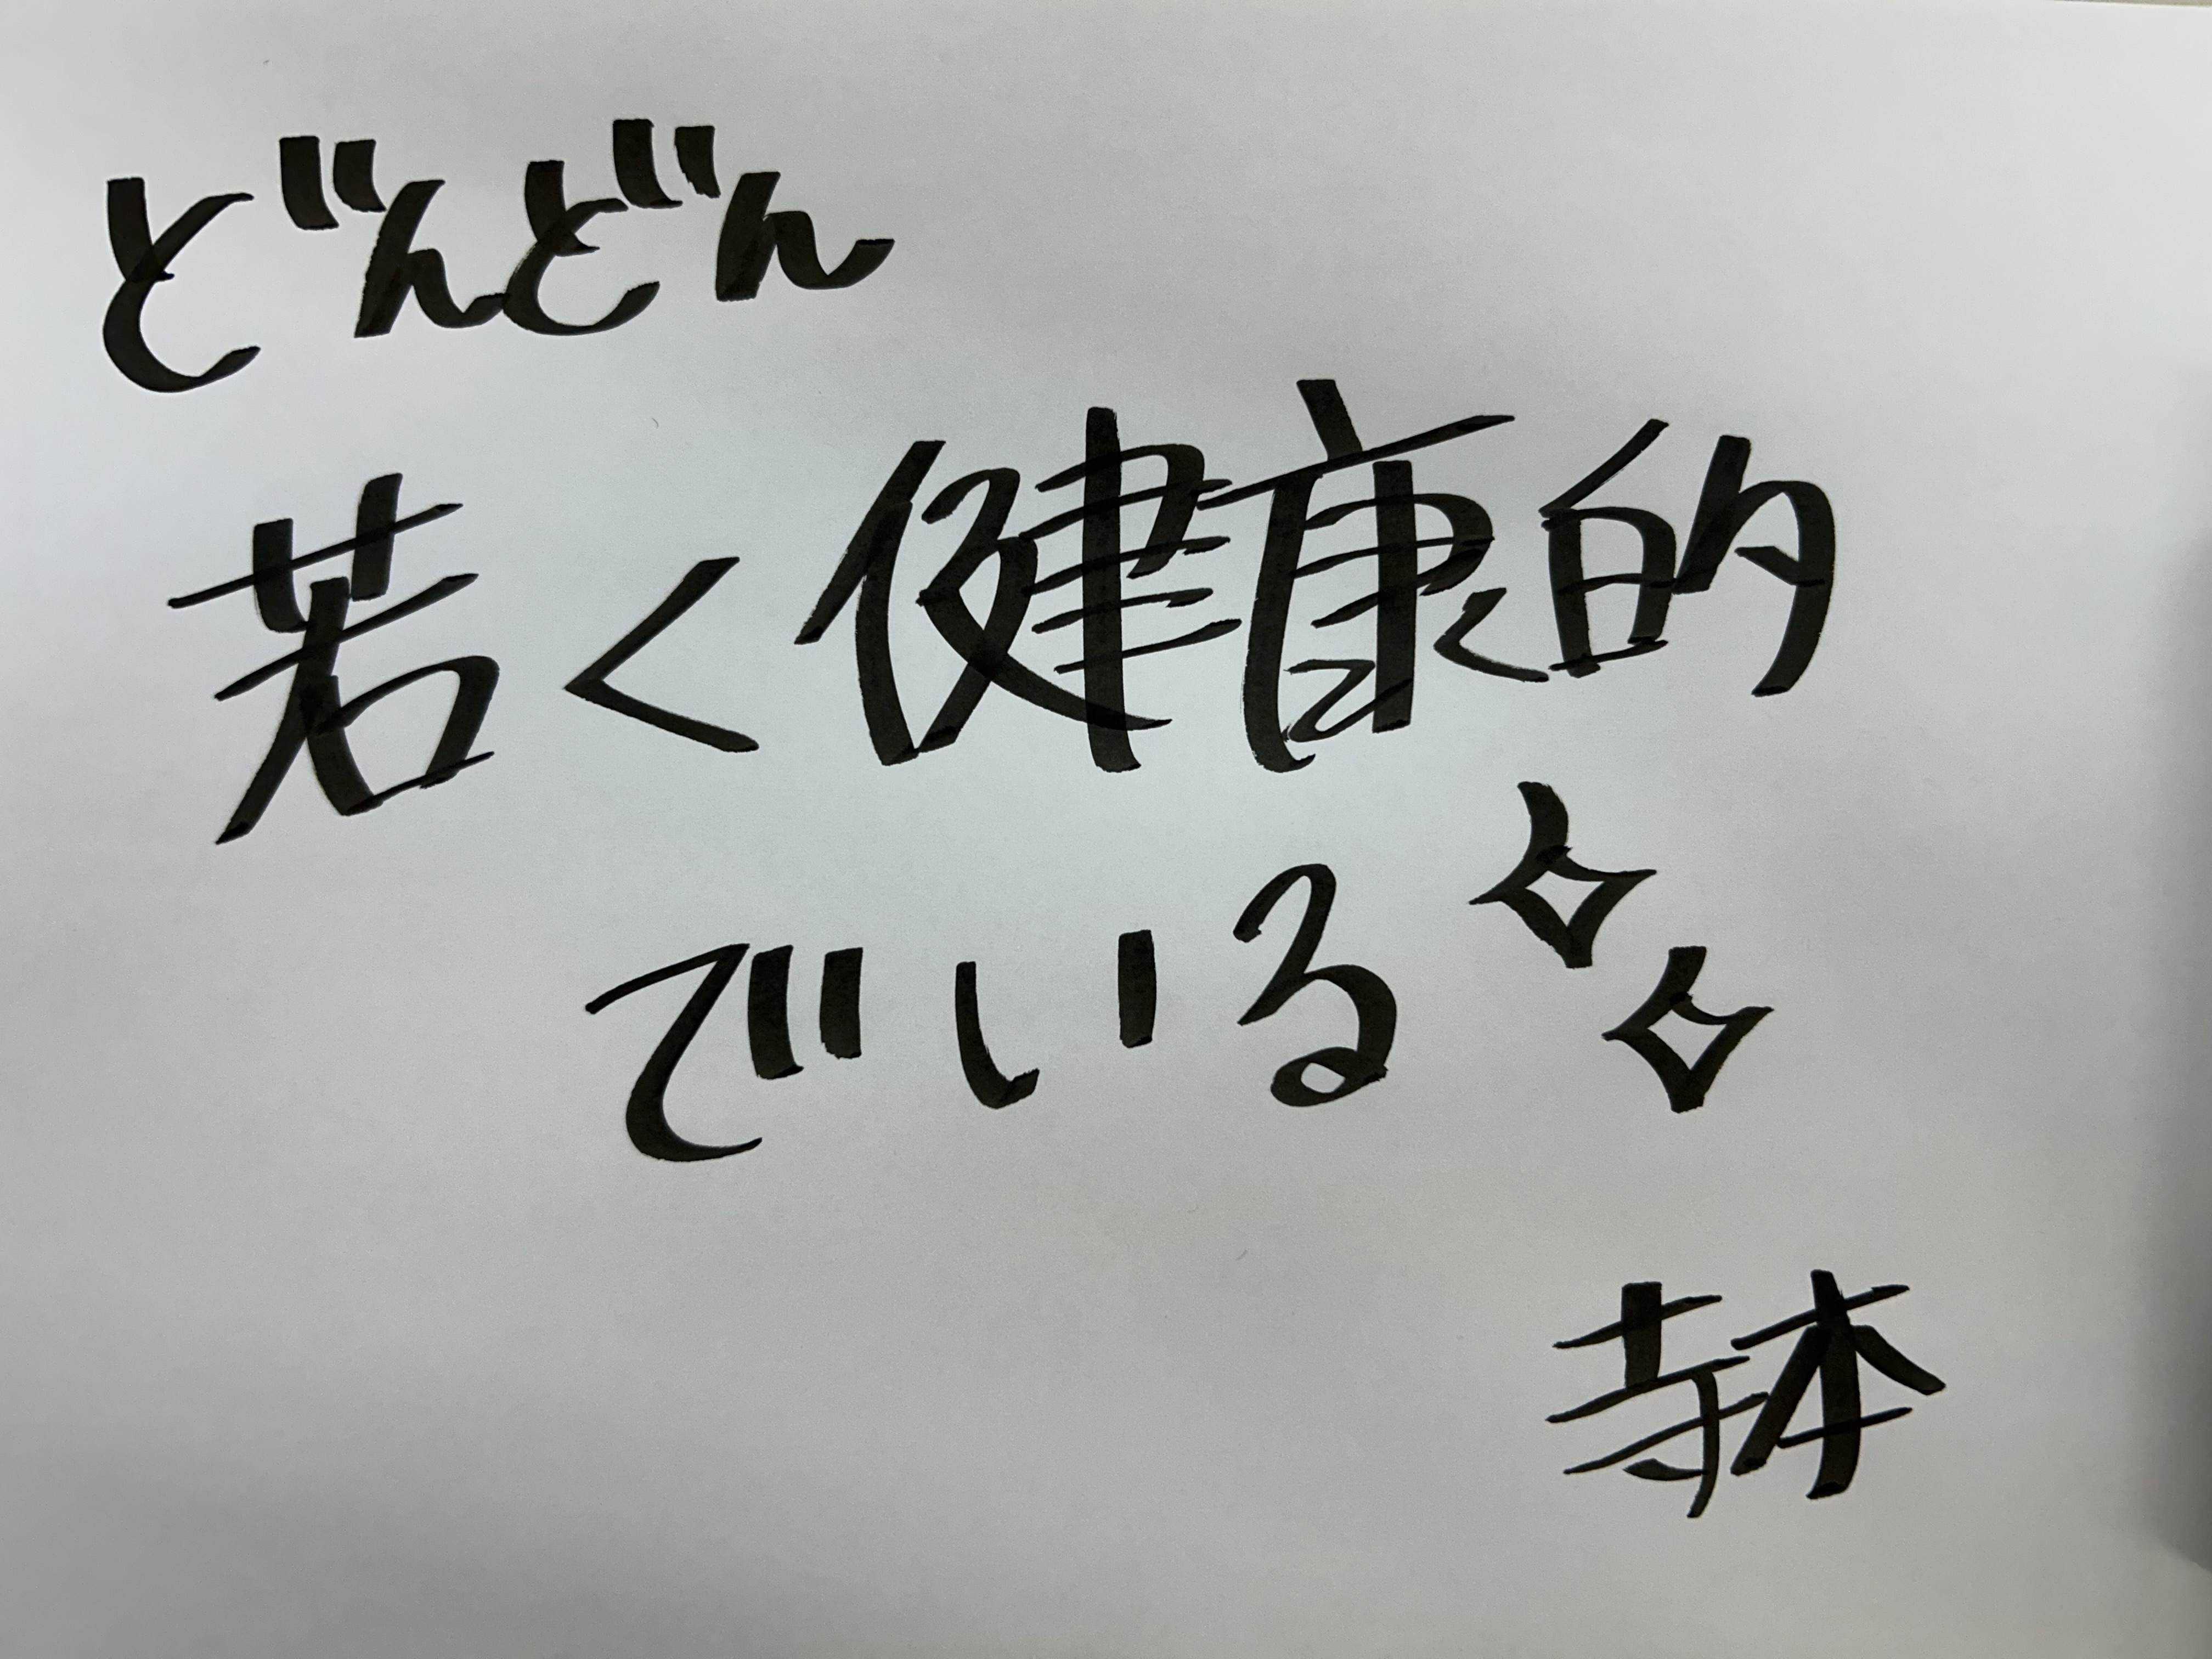 どんどん
若く健康的
でいる✧✧
寺本